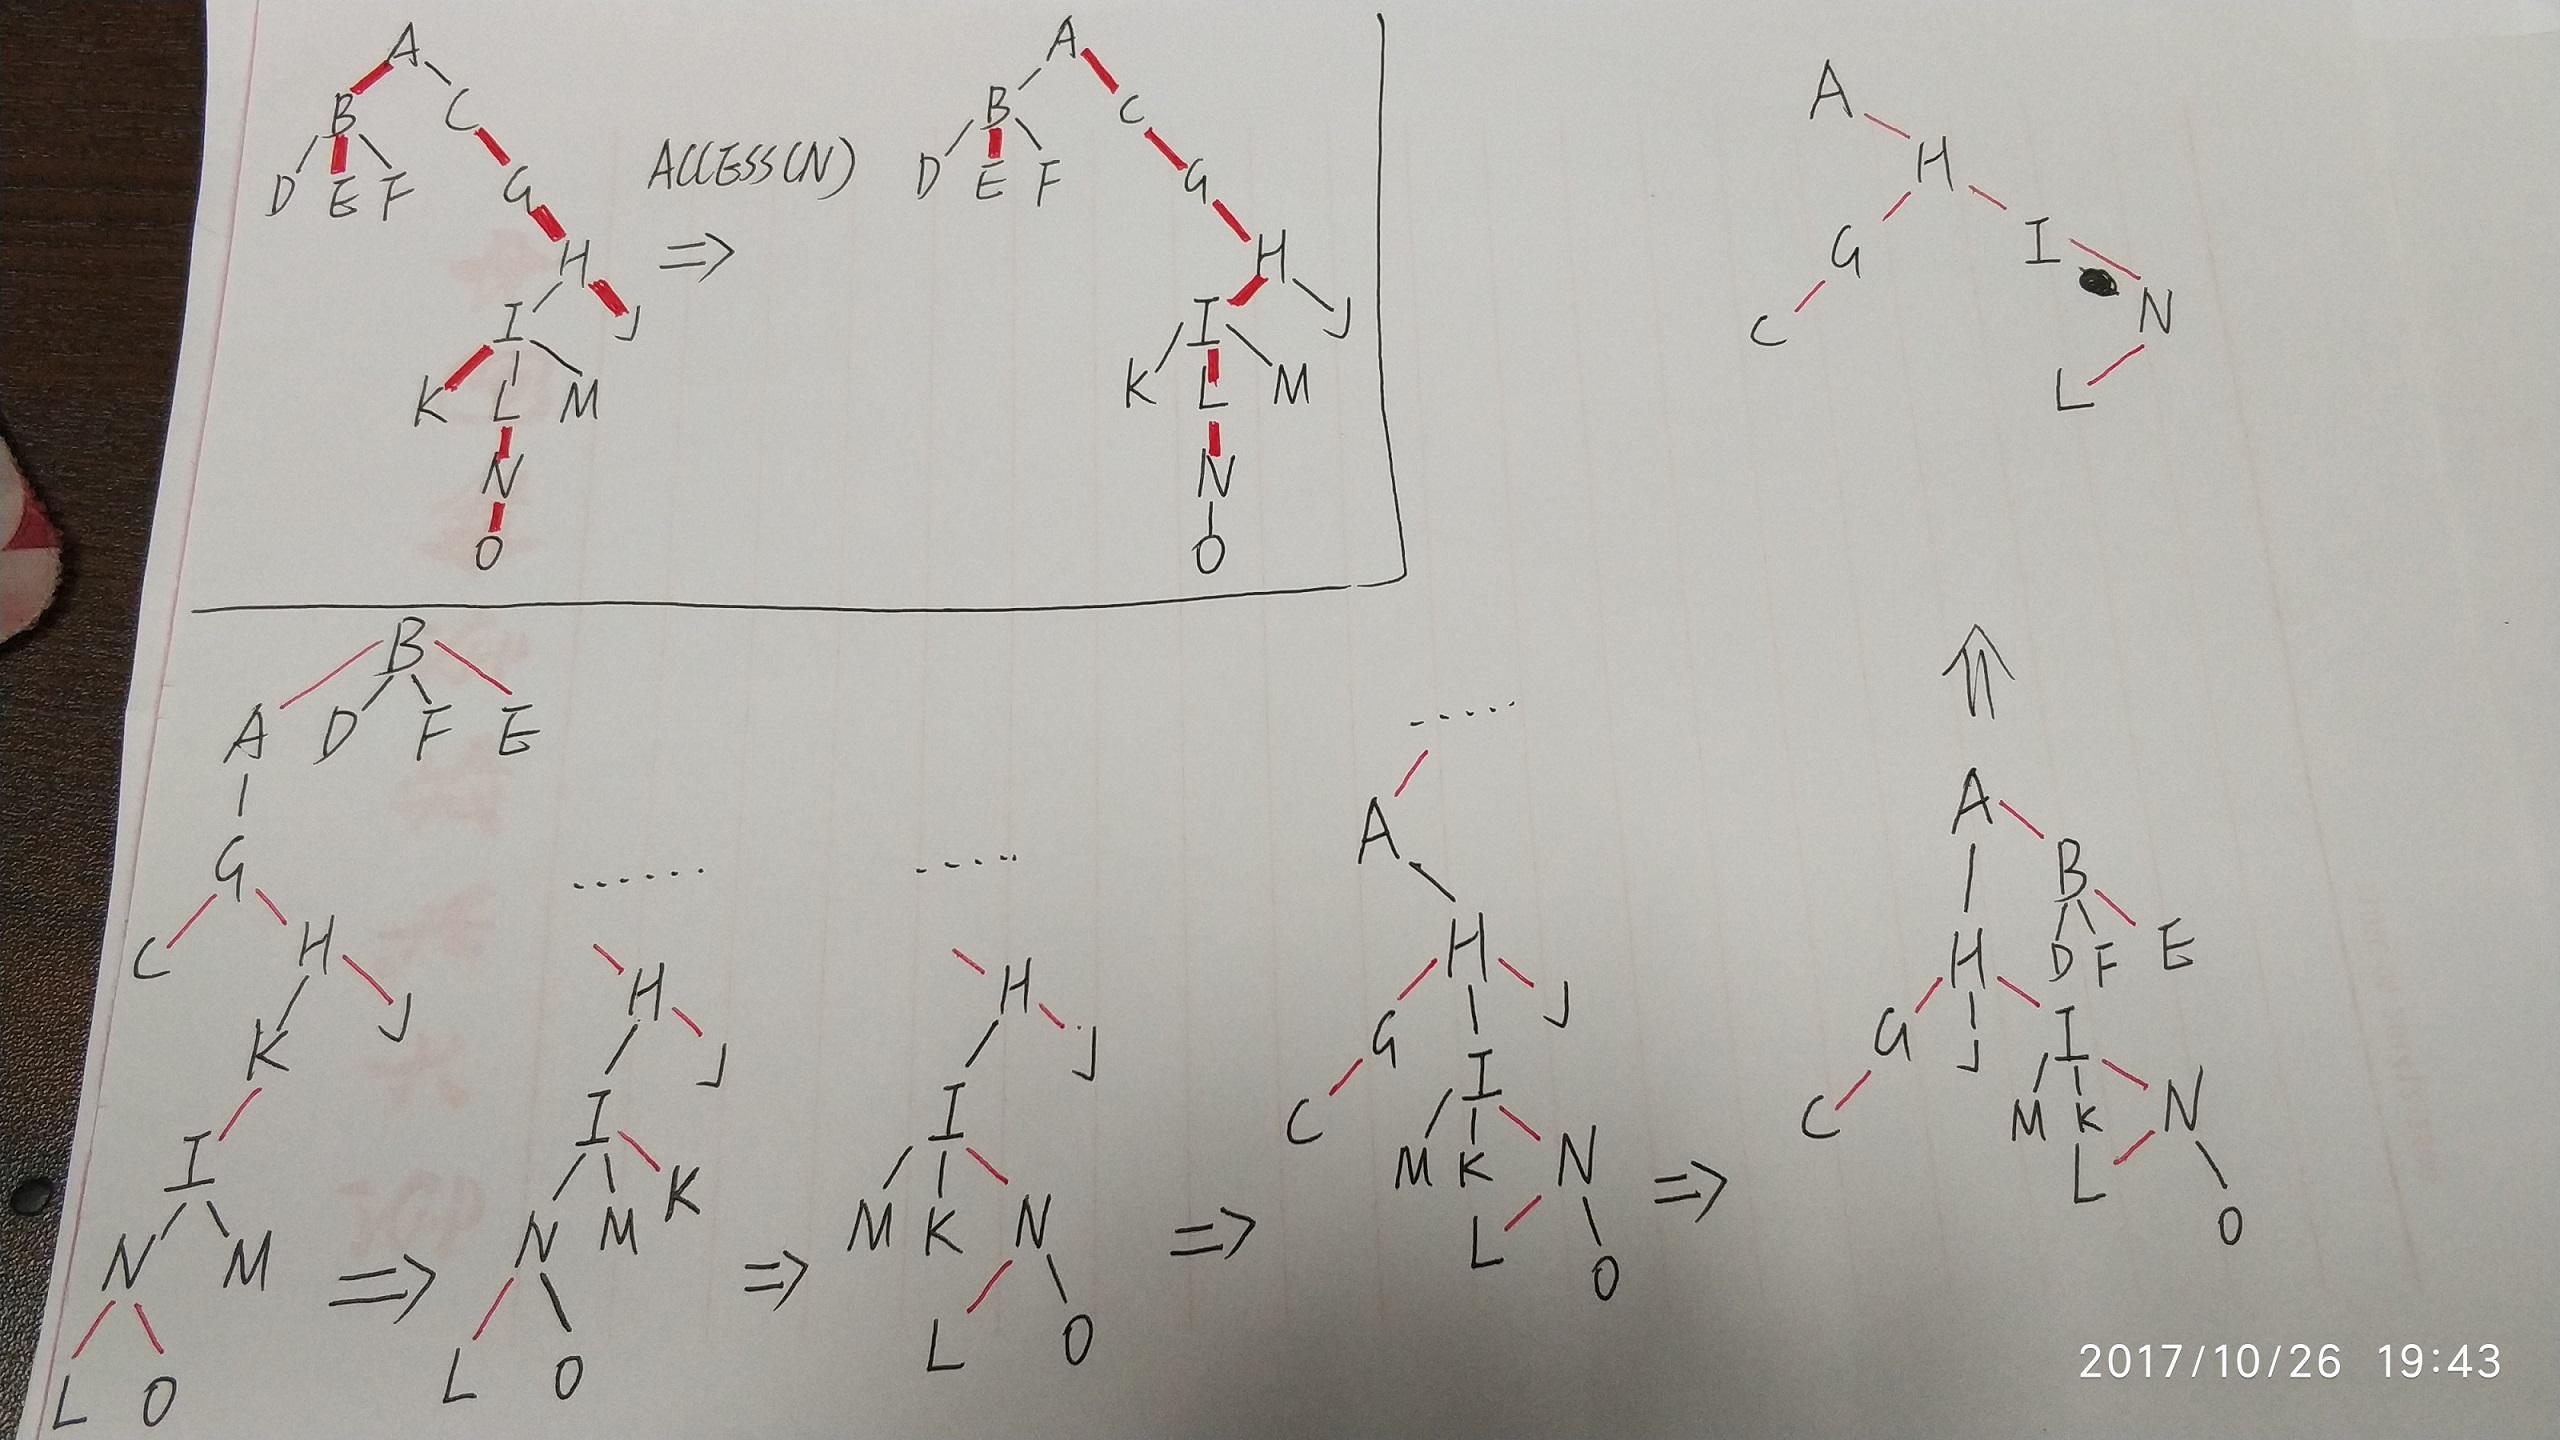 A
A
B C
B C
ACCESS(N)
D E F G
D E F G
H
H
I J
I J
K L M
K L M
N
N
O
O
A
H
G I
C N
L
B
A D F E
G
C H
K J
I
N M
L O
H
J
I
N M K
L O
H
J
I
M K N
L O
A
H
G J
C I
M K N
L O
A
B
H D F E
G J I
C M K N
L O
2017/10/26 19:43